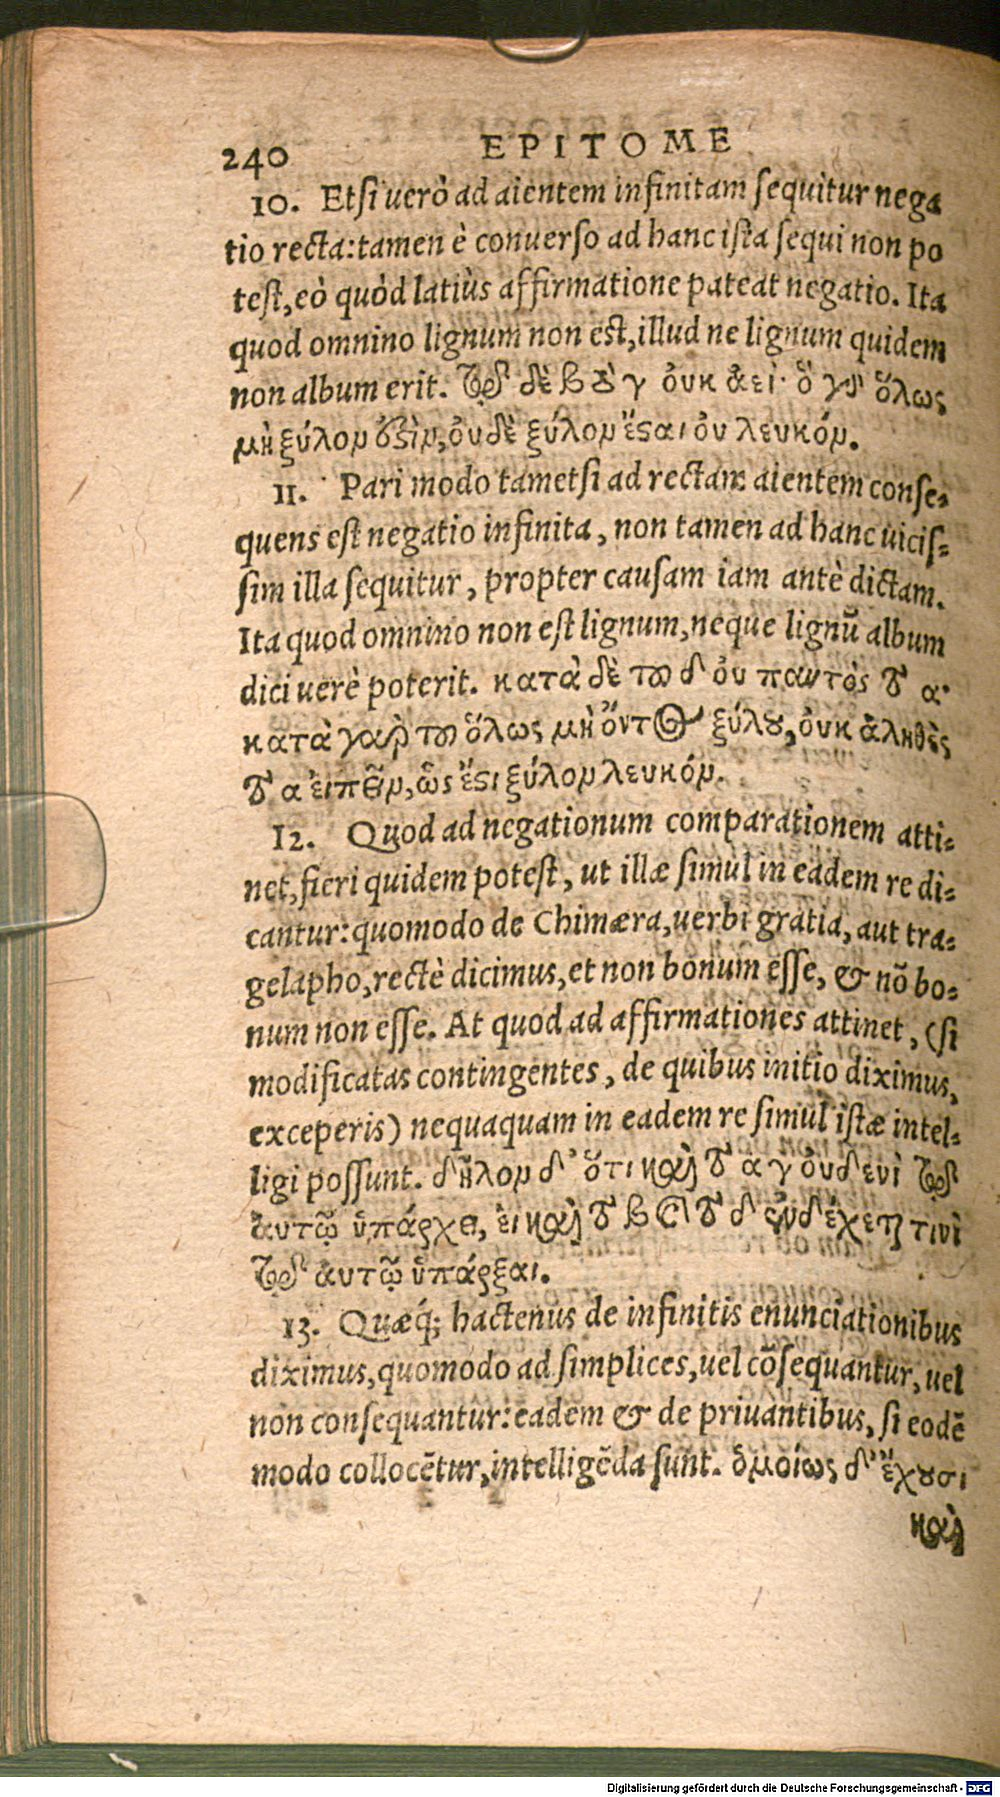 240 EPITOME
10. Etsi uerò ad aientem infinitam sequitur nega
tio recta: tamen è conuerso ad hanc ista sequi non po
test, eò quòd latiùs affirmatione pateat negatio. Ita
quod omnino lignum non est, illud ne lignum quidem
non album erit. τῷ δὲ β τὸ γ οὐκ ἀεί· ὃ γὰρ ὅλως
μὴ ξύλον ἐστὶν, οὐδὲ ξύλον ἔσται οὐ λευκόν.
11. Pari modo tametsi ad rectam aientem conse-
quens est negatio infinita, non tamen ad hanc uicis-
sim illa sequitur, propter causam iam antè dictam.
Ita quod omnino non est lignum, neque lignũ album
dici uerè poterit. κατὰ δὲ τοῦ δ οὐ παντὸς τὸ α·
κατὰ γὰρ τοῦ ὅλως μὴ ὄντος ξύλου, οὐκ ἀληθὲς
τὸ α εἰπεῖν, ὡς ἔστι ξύλον λευκόν.
12. Quod ad negationum comparationem atti-
net, fieri quidem potest, ut illæ simul in eadem re di-
cantur: quomodo de Chimæra, uerbi gratia, aut tra-
gelapho, rectè dicimus, et non bonum esse, & nõ bo-
num non esse. At quod ad affirmationes attinet, (si
modificatas contingentes, de quibus initio diximus,
exceperis) nequaquam in eadem re simul istæ intel-
ligi possunt. δῆλον δ' ὅτι καὶ τὸ α γ οὐδενὶ τῷ
αυτῷ ὑπάρχει, εἰ καὶ τὸ β καὶ τὸ δ ἐνδέχεται τινὶ
τῷ αυτῷ ὑπάρξαι.
13. Quæq; hactenus de infinitis enunciationibus
diximus, quomodo ad simplices, uel cõsequantur, uel
non consequantur: eadem & de priuantibus, si eodẽ
modo collocẽtur, intelligẽda sunt. ὁμοίως δ' ἔχουσι
καὶ
Digitalisierung gefördert durch die Deutsche Forschungsgemeinschaft - DFG